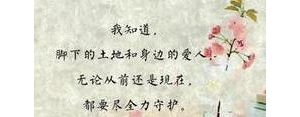 我知道，
脚下的土地和身边的爱人，
无论从前还是现在，
都要尽全力守护。